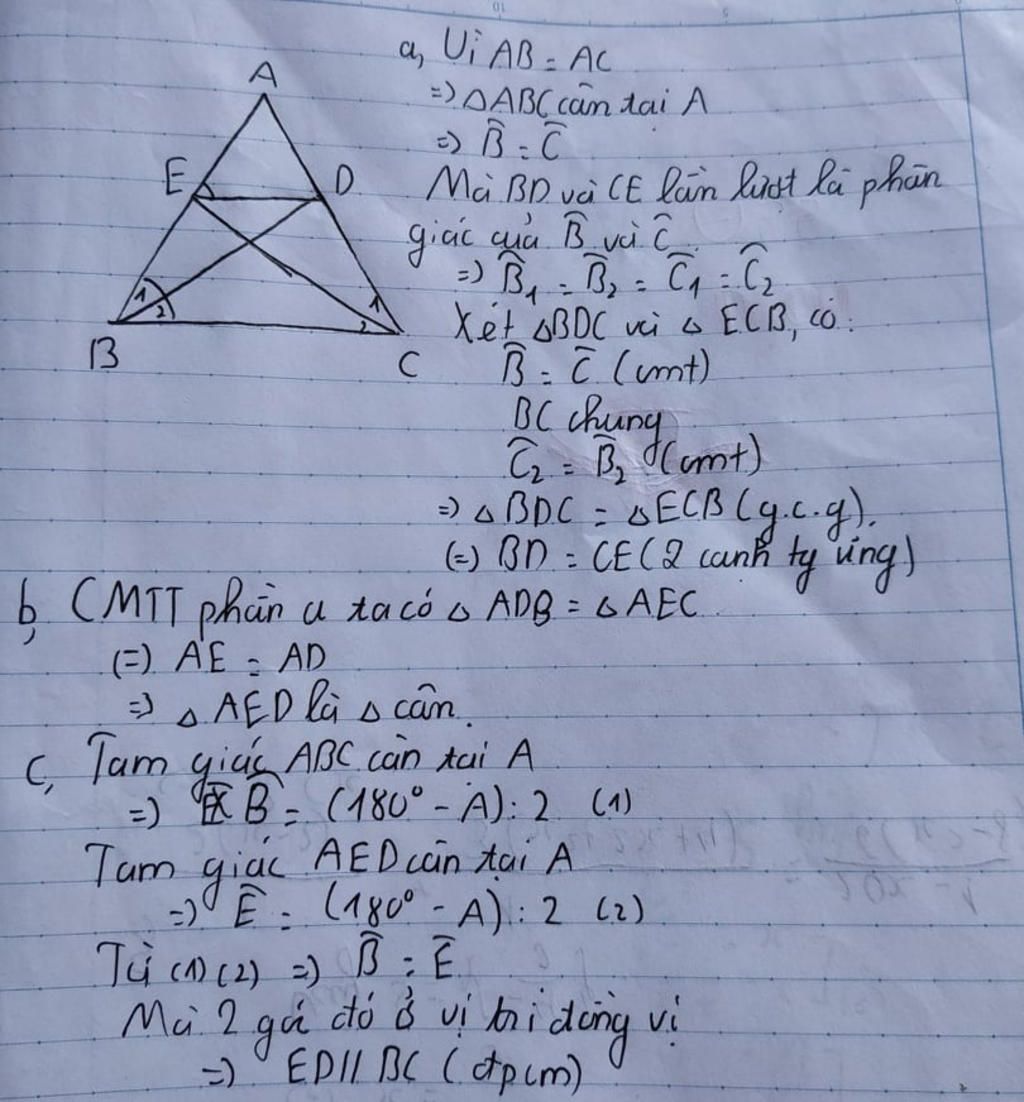 A
E
D
1
2
1
2
B
C
a, Vì AB = AC
=> △ABC cân tai A
=> B̂ = Ĉ
Mà BD và CE lần lượt là phân
giác của B̂ và Ĉ
=> B̂₁ = B̂₂ = Ĉ₁ = Ĉ₂
Xét △BDC và △ ECB, có:
B̂ = Ĉ (cmt)
BC chung
Ĉ₂ = B̂₂ (cmt)
=> △ BDC = △ECB (g.c.g).
(=) BD = CE (2 canh tg ứng)
b, CMTT phần a ta có △ ADB = △ AEC
(=) AE = AD
=> △ AED là △ cân.
c, Tam giác ABC cân tai A
=> B̂ = (180° - A) : 2 (1)
Tam giác AED cân tai A
=> Ê = (180° - A) : 2 (2)
Từ (1) (2) => B̂ = Ê
Mà 2 gó đó ở vị trí đồng vị
=> ED // BC (đpcm)